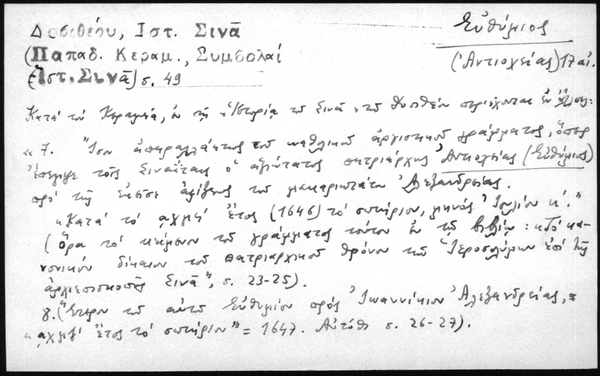 Δοσιθέου, Ιστ. Σινᾶ
(Παπαδ. Κεραμ., Συμβολαί
(Ἱστ. Σινᾶ) σ. 49
Εὐθύμιος
(Ἀντιοχείας) 17 αἰ.
Κατὰ τὸν Κεραμέα, ἐν τῇ Ἱστορίᾳ τοῦ Σινᾶ τοῦ περιέχονται ἐν
« 7. "Ἴσον ἀπαραλλάκτως τοῦ καθολικοῦ ἀρχιστικοῦ γράμματος, ὅπερ
ἔπεμψε τοῖς Σιναΐταις ὁ ἁγιώτατος πατριάρχης Ἀντιοχείας (Εὐθύμιος)
περὶ τῆς ἐκεῖσε ἀφίξεως τοῦ μακαριωτάτου Ἀλεξανδρείας.
«Κατὰ τὸ αχμϛʹ ἔτος (1646) τὸ σωτήριον, μηνὸς Ἰουλίου κʹ."
(Ὅρα τὸ κείμενον τοῦ γράμματος τούτου ἐν τῷ βιβλίῳ: «Τὸ κα-
νονικὸν δίκαιον τοῦ πατριαρχικοῦ θρόνου τῶν Ἱεροσολύμων ἐπὶ τῆς
ἀρχιεπισκοπῆς Σινᾶ", σ. 23-25).
8. (Ἕτερον τοῦ αὐτοῦ Εὐθυμίου πρὸς Ἰωαννίκιον Ἀλεξανδρείας,
«αχμζʹ ἔτος τὸ σωτήριον" = 1647. Αὐτόθι σ. 26-27).